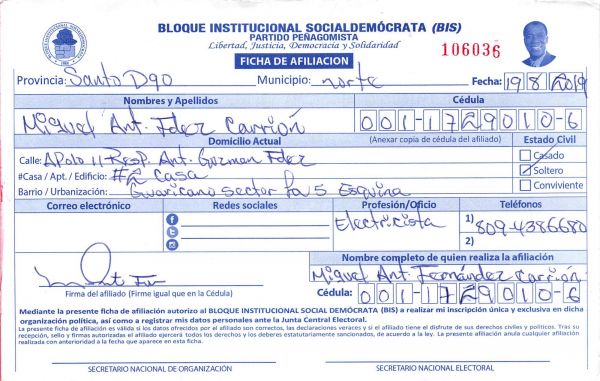 BLOQUE INSTITUCIONAL SOCIALDEMÓCRATA (BIS)
PARTIDO PEÑAGOMISTA
Libertad, Justicia, Democracia y Solidaridad
FICHA DE AFILIACION
106036
Provincia: Santo Dgo Municipio: norte Fecha: 19 8 2019
Nombres y Apellidos Cédula
Miguel Ant. Fdez Carrión 001-1729010-6
Domicilio Actual (Anexar copia de cédula del afiliado) Estado Civil
Calle: Apolo 11 Resp. Ant. Guzman Fdez Casado
#Casa / Apt. / Edificio: #2 Casa Soltero
Barrio / Urbanización: Guaricano sector la 5 Esquina Conviviente
Correo electrónico Redes sociales Profesión/Oficio Teléfonos
Electricista 1) 809-4386680
2)
Nombre completo de quien realiza la afiliación
Miguel Ant. Fernández Carrión
Firma del afiliado (Firme igual que en la Cédula) Cédula: 001-1729010-6
Mediante la presente ficha de afiliación autorizo al BLOQUE INSTITUCIONAL SOCIAL DEMÓCRATA (BIS) a realizar mi inscripción única y exclusiva en dicha
organización política, así como a registrar mis datos personales ante la Junta Central Electoral.
La presente ficha de afiliación es válida si los datos ofrecidos por el afiliado son correctos, las declaraciones veraces y si el afiliado tiene el disfrute de sus derechos civiles y políticos. Tras su
recepción, sello y firmas autorizadas el afiliado ejercerá todos los derechos y los deberes estatutariamente sancionados, de acuerdo a la ley. La presente afiliación anula cualquier afiliación
realizada con anterioridad a la fecha que aparece en esta ficha.
SECRETARIO NACIONAL DE ORGANIZACIÓN SECRETARIO NACIONAL ELECTORAL